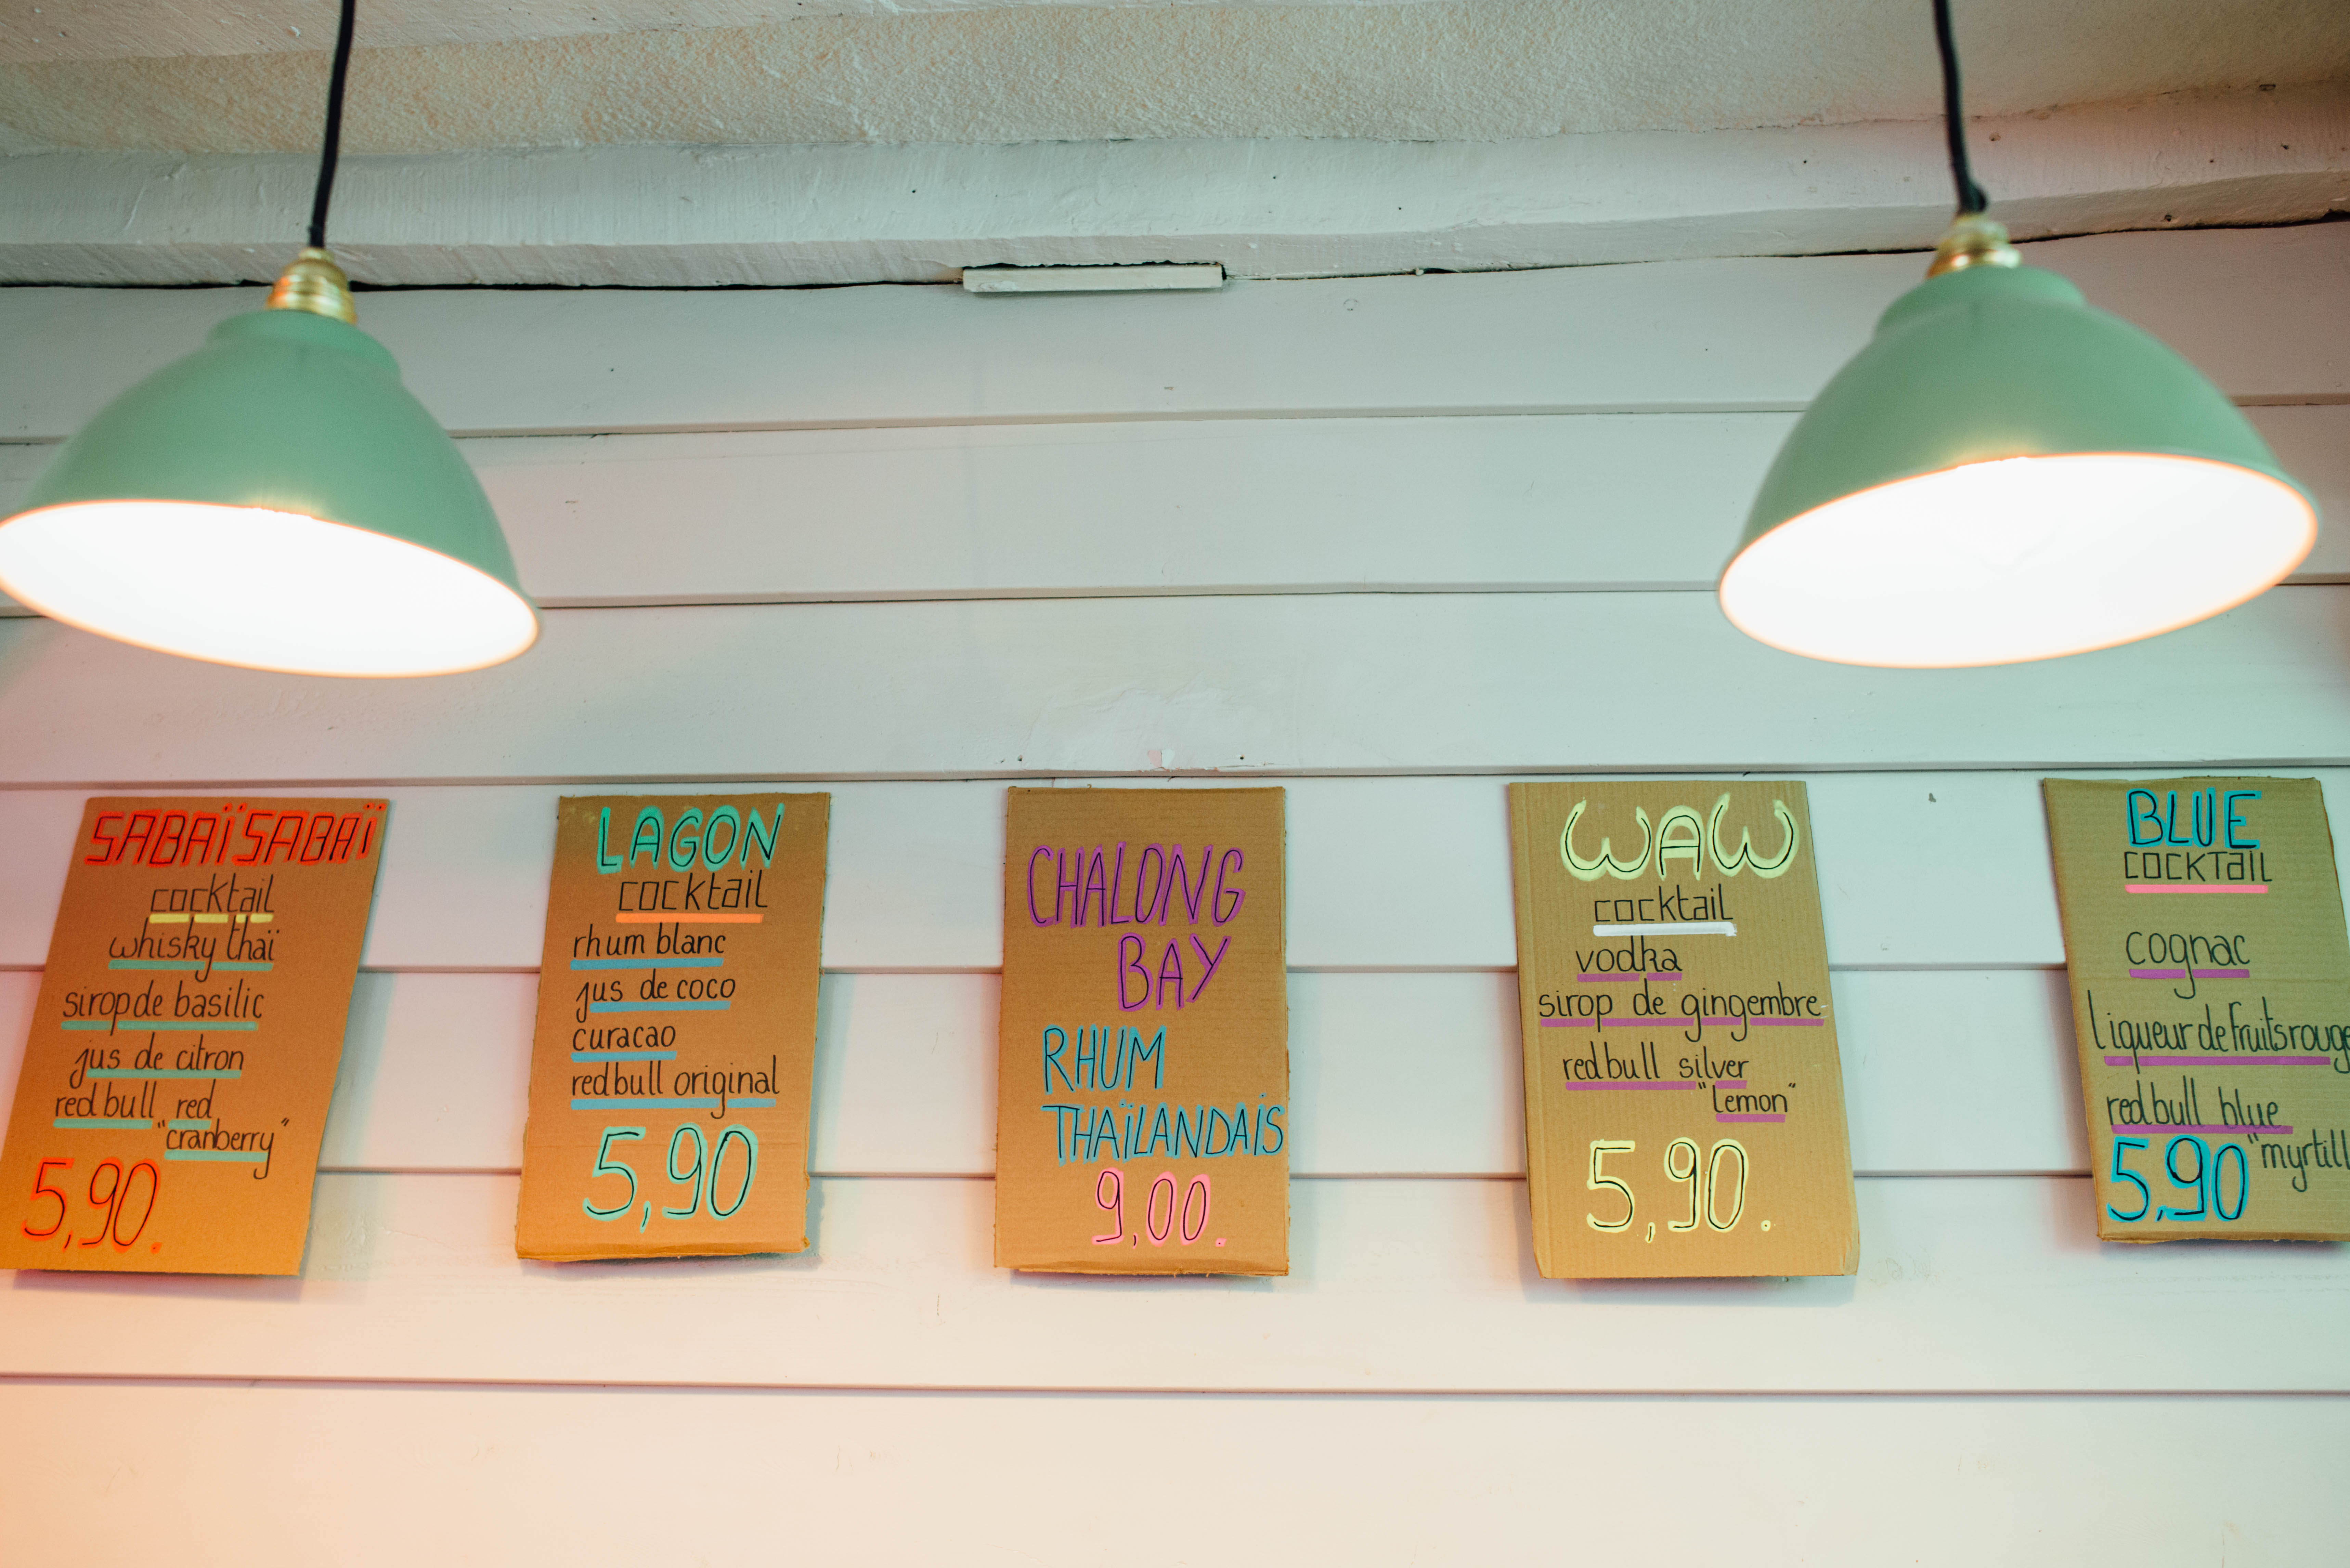 SABAÏ SABAÏ
cocktail
whisky thaï
sirop de basilic
jus de citron
redbull red
"cranberry"
5,90.
LAGON
cocktail
rhum blanc
jus de coco
curacao
redbull original
5,90
CHALONG
BAY
RHUM
THAÏLANDAIS
9,00.
WAW
cocktail
vodka
sirop de gingembre
redbull silver
"lemon"
5,90.
BLUE
COCKTAIL
cognac
liqueur de fruits rouge
redbull blue
"myrtill
5,90